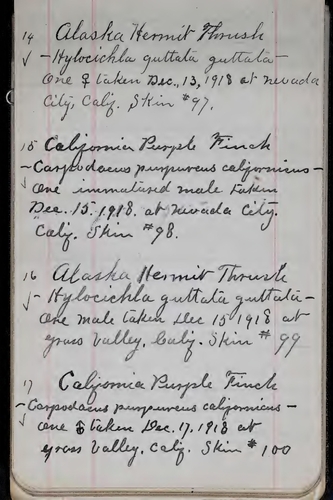 14 Alaska Hermit Thrush
✓ - Hylocichla guttata guttata -
One ♀ taken Dec., 13, 1918 at Nevada
City, Calif. Skin #97.
15 California Purple Finch
- Carpodacus purpureus californicus -
✓ One immatured male taken
Dec. 15. 1918. at Nevada City.
Calif. Skin #98.
16 Alaska Hermit Thrush
✓ - Hylocichla guttata guttata -
One male taken Dec 15 1918 at
Grass Valley, Calif. Skin # 99
17 California Purple Finch
✓ - Carpodacus purpureus californicus -
One taken Dec. 17. 1918 at
Grass Valley. Calif. Skin # 100